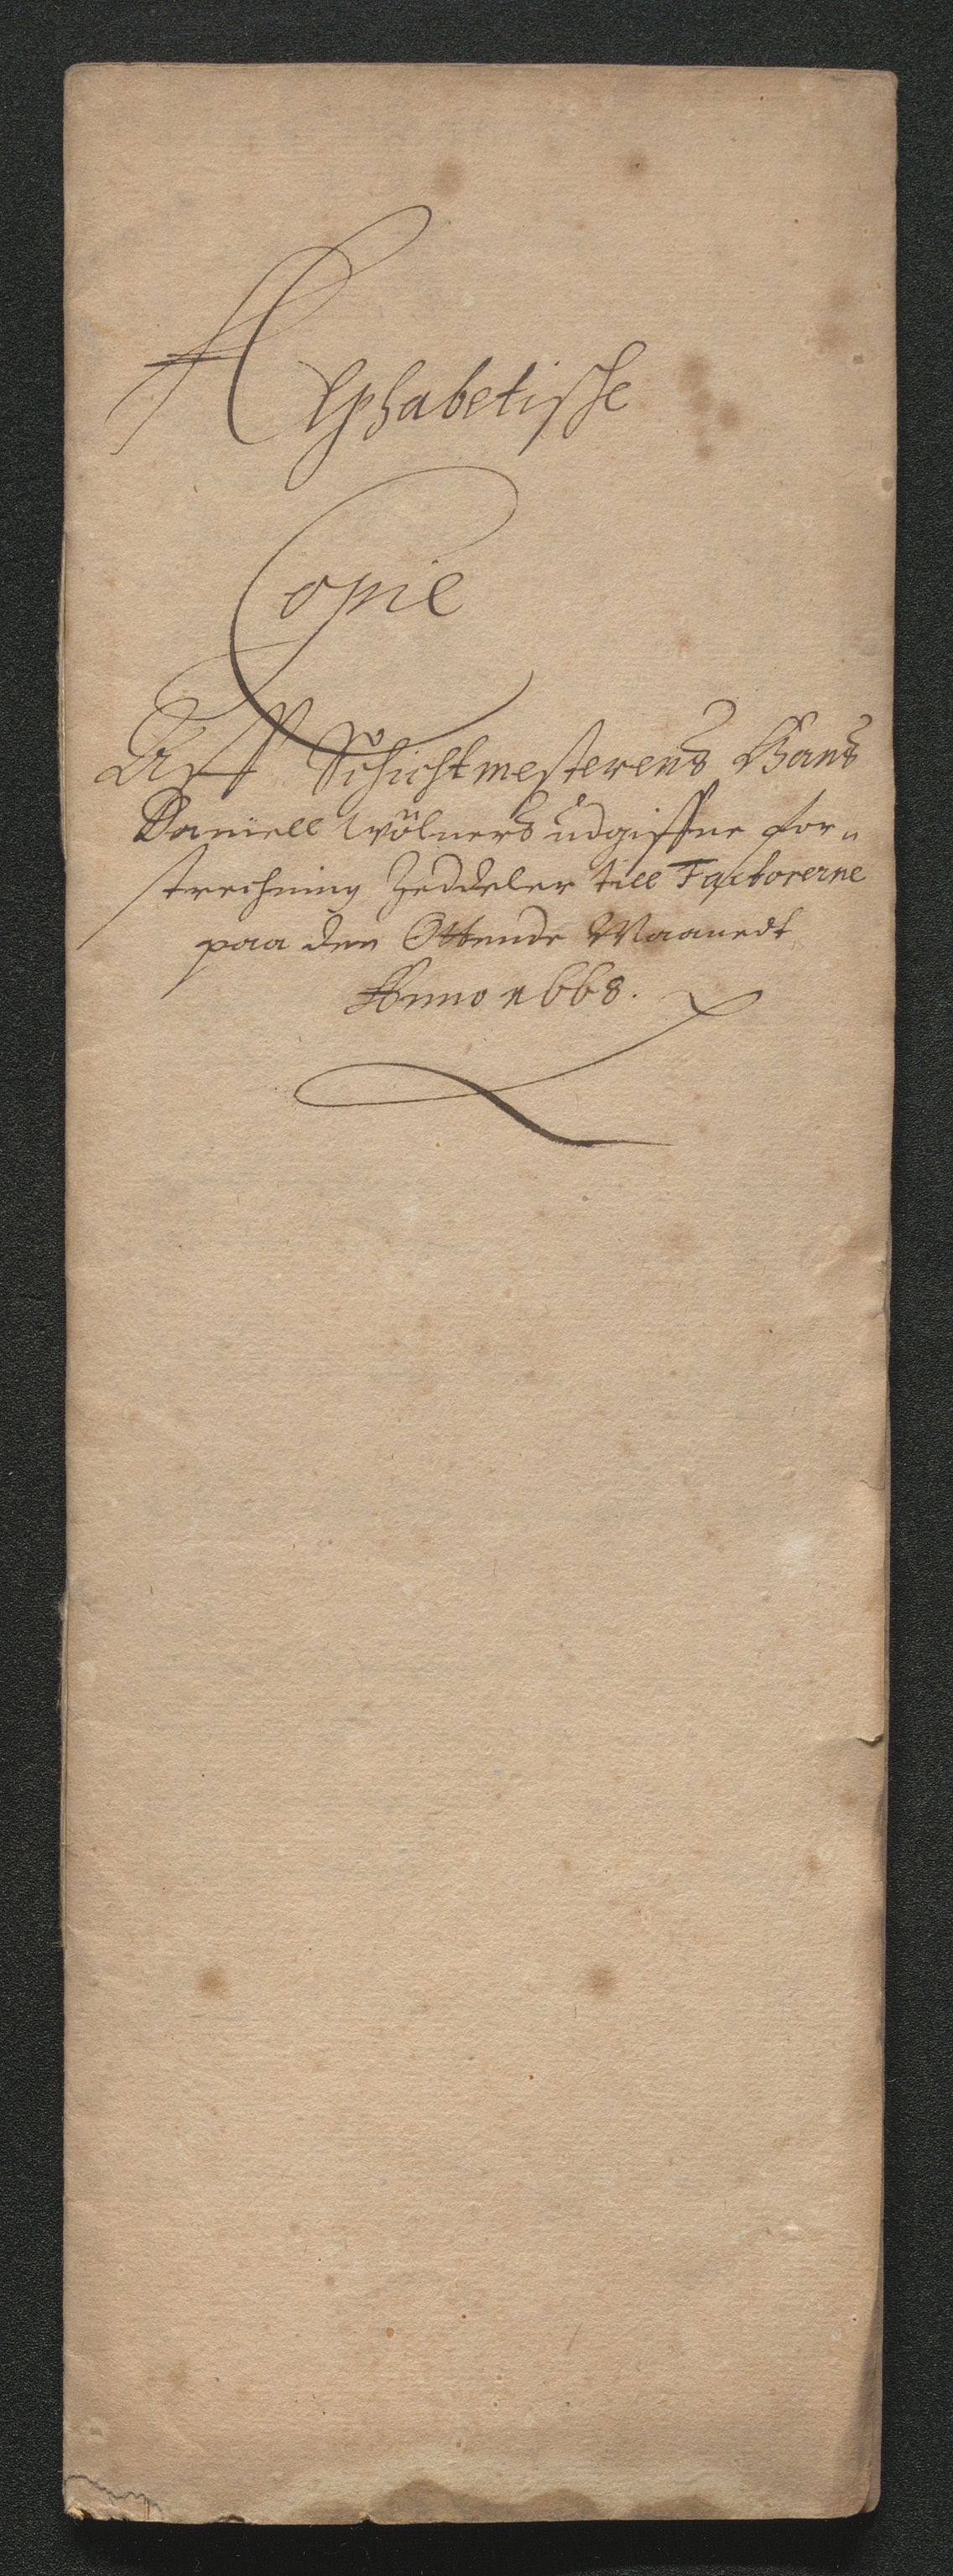 Alphabetiske
Copie
Aff Schichtmesterens Hans
Daniell Wölners udgiffne for„
strechning Zeddeler till Factorerne
paa den Ottende Maanedt
Anno 1668.